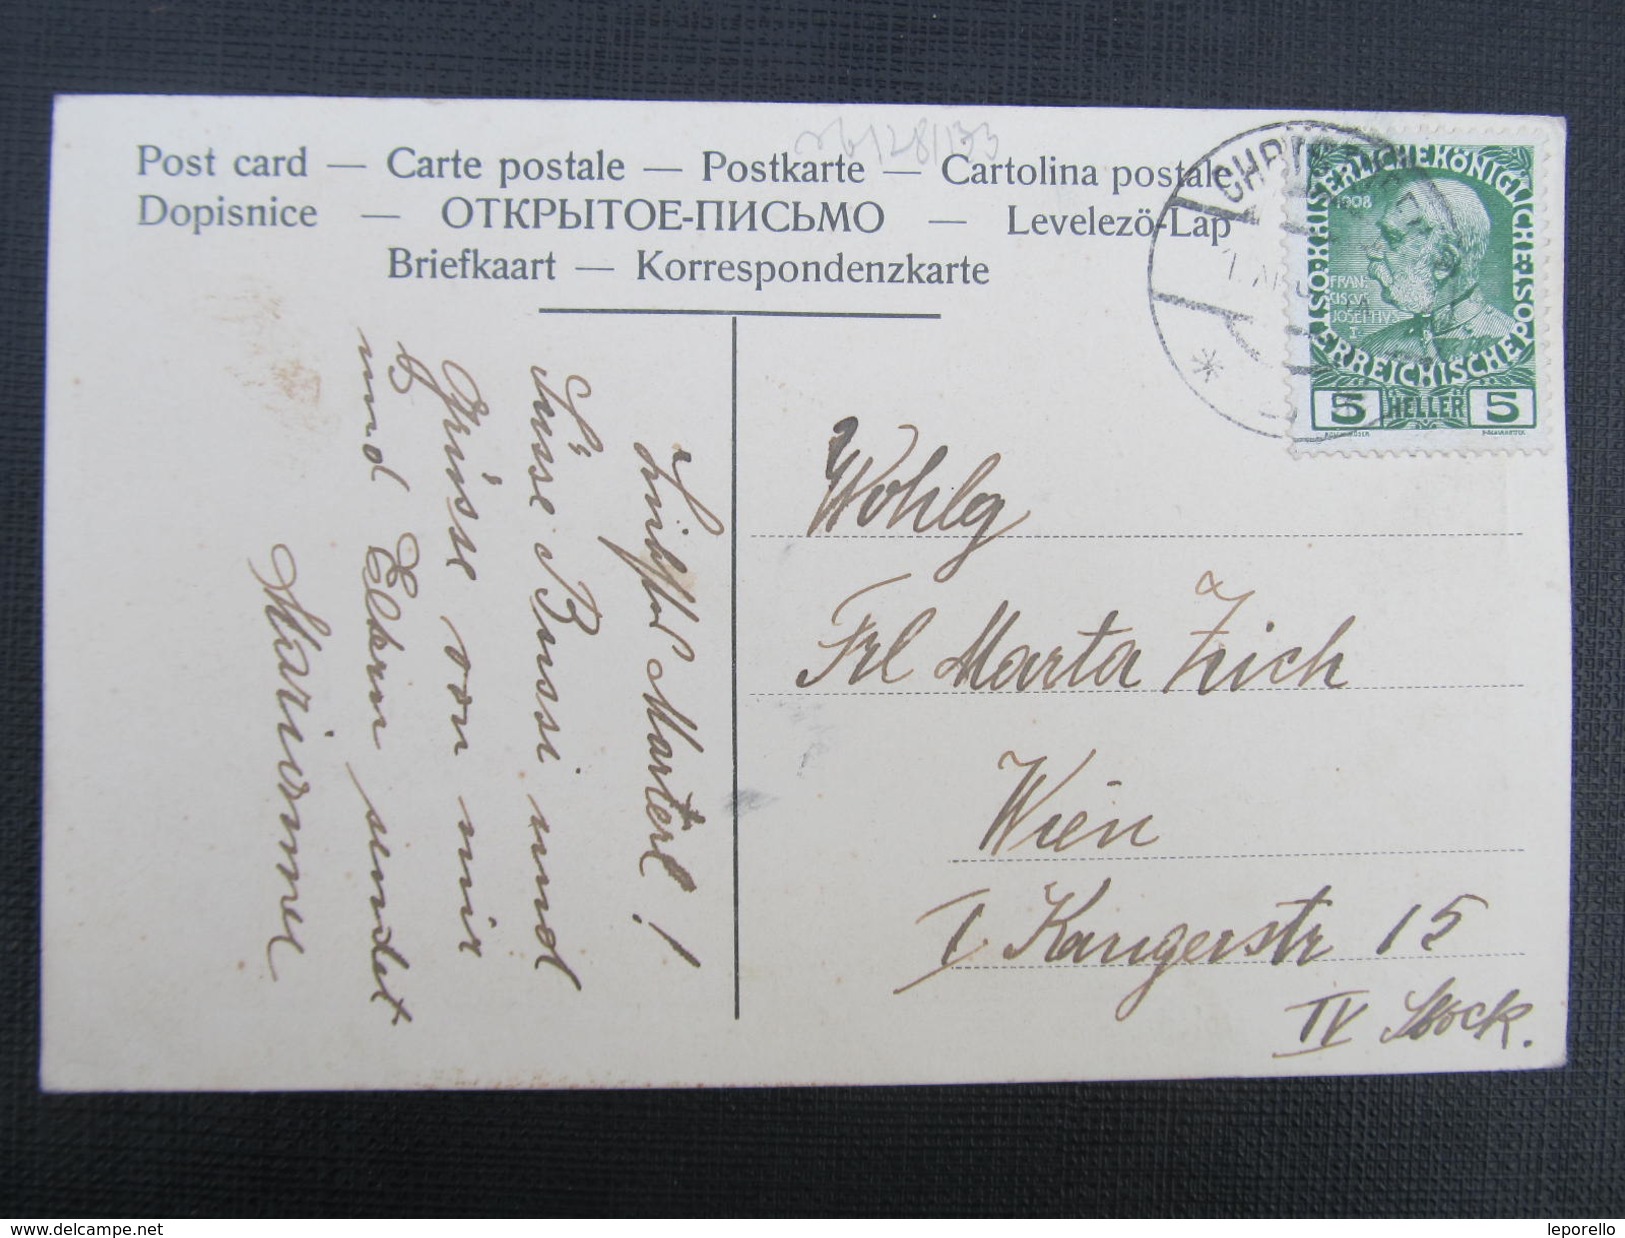 Post card — Carte postale — Postkarte — Cartolina postale
Dopisnice — ОТКРЫТОЕ-ПИСЬМО — Levelező-Lap
Briefkaart — Korrespondenzkarte
KAISERLICHE KÖNIGLICHE
ÖSTERREICHISCHE POST
1908
FRAN-
CISCVS
JOSEPHVS
I.
5 HELLER 5
Marterl!
Süsse Bussi und
Grüsse von mir
und Eltern sendet
Wohlg
Frl Marta Zich
Wien
I Kangerstr 15
IV Stock.
www.delcampe.net
leporello